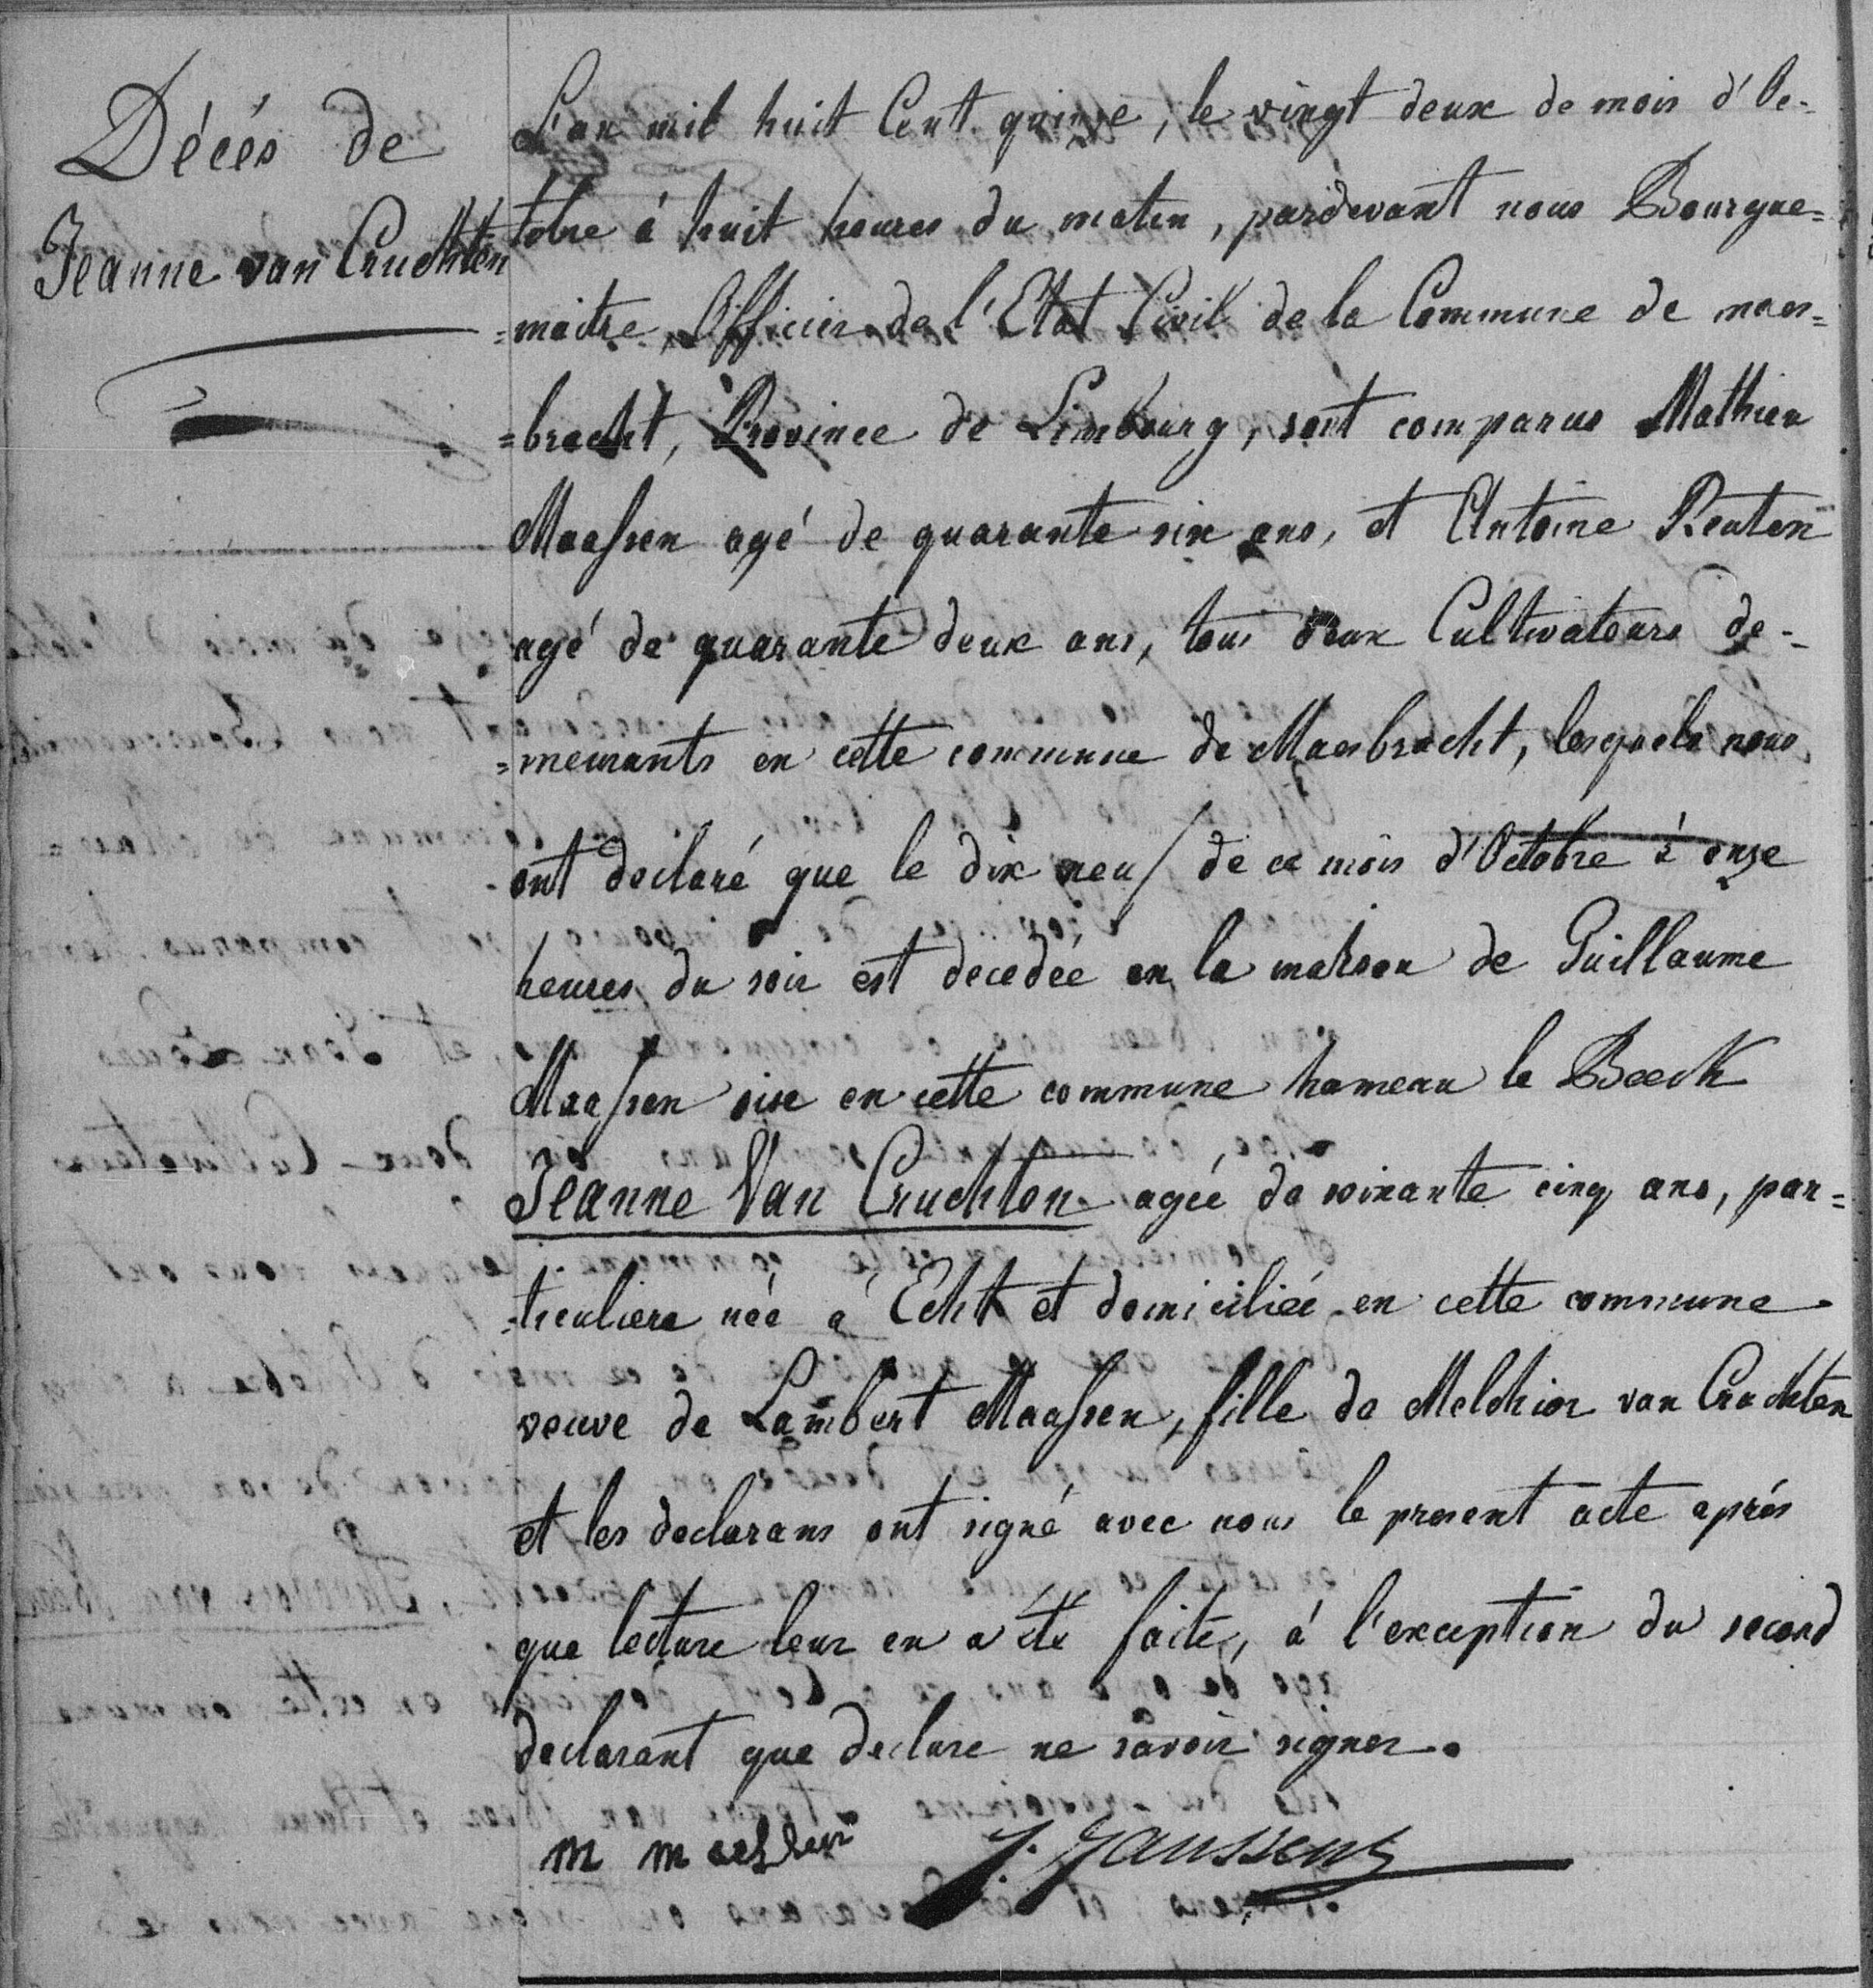 Décés de
Jeanne van Cruchten
L'an mil huit Cent quinze, le vingt deux de mois d'Oc-
tobre à huit heures du matin, pardevant nous Bourgue=
=maitre, Officier de l'Etat Civil de la Commune de maes=
=bracht, Province de Limbourg, sont comparus Mathieu
Maassen agé de quarante six ans, et Antoine Reuten
agé de quarante deux ans, tous deux Cultivateurs de-
=meurants en cette commune de Maesbracht, lesquels nous
ont declaré que le dix neuf de ce mois d'Octobre à onze
heures du soir est decedée en la maison de Guillaume
Maassen sise en cette commune hameau le Beeck
Jeanne Van Cruchten agée de soixante cinq ans, par=
=ticuliere née à Echt et domiciliée en cette commune
veuve de Lambert Maassen, fille de Melchior van Cruchten
et les declarans ont signé avec nous le present acte après
que lecture leur en a été faite, à l'exception du second
declarant que declare ne savoir signer.
m maessen J. Janssens